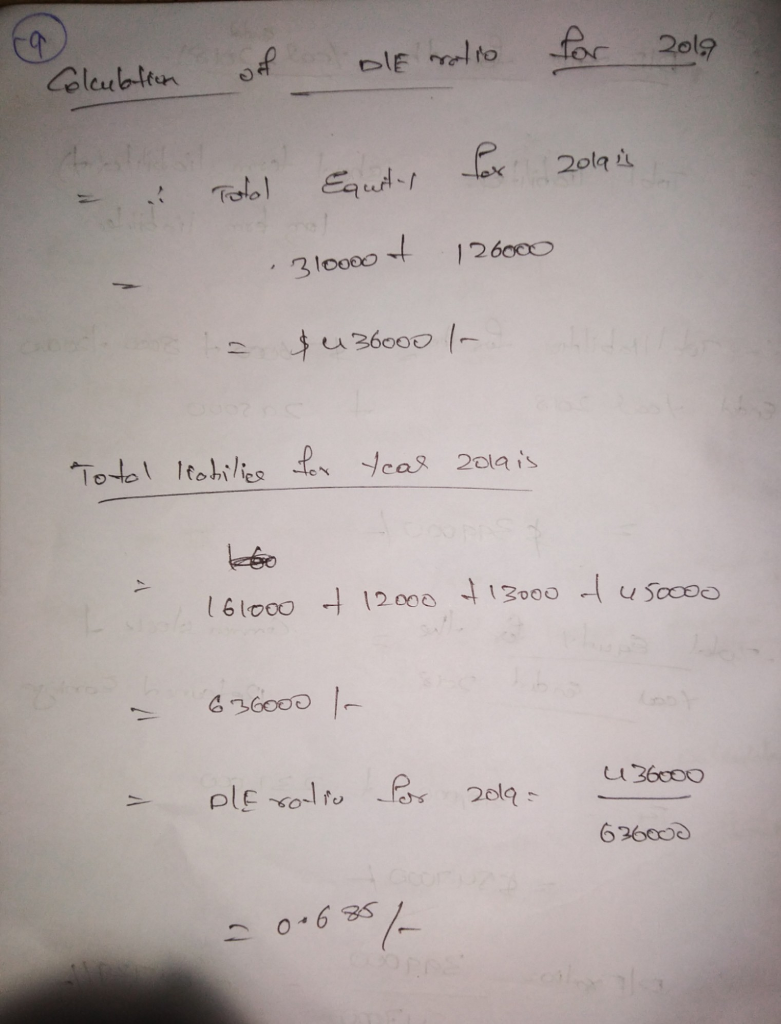 -9
Calculation of D/E ratio for 2019
= ∴ Total Equity for 2019 is
= 310000 + 126000
= $436000/-
Total liabilies for Year 2019 is
=
161000 + 12000 + 13000 + 450000
= 636000/-
= D/E ratio for 2019 = 436000
636000
= 0.685/-